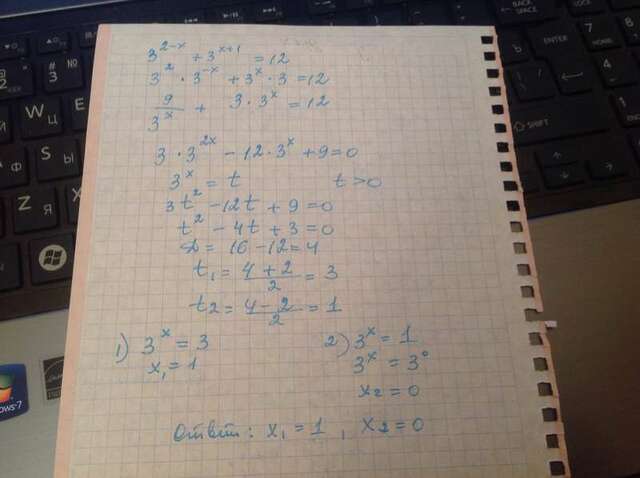 3^{2-x} + 3^{x+1} = 12
3^2 · 3^{-x} + 3^x · 3 = 12
\frac{9}{3^x} + 3 · 3^x = 12
3 · 3^{2x} - 12 · 3^x + 9 = 0
3^x = t t > 0
3t^2 - 12t + 9 = 0
t^2 - 4t + 3 = 0
D = 16 - 12 = 4
t_1 = \frac{4+2}{2} = 3
t_2 = \frac{4-2}{2} = 1
1) 3^x = 3
x_1 = 1
2) 3^x = 1
3^x = 3^0
x_2 = 0
Ответ: x_1 = 1, x_2 = 0
BACK SPACE
ENTER
SHIFT
Ctrl
№
3
Ц
W
Ф
A
Ы
S
Я
Z